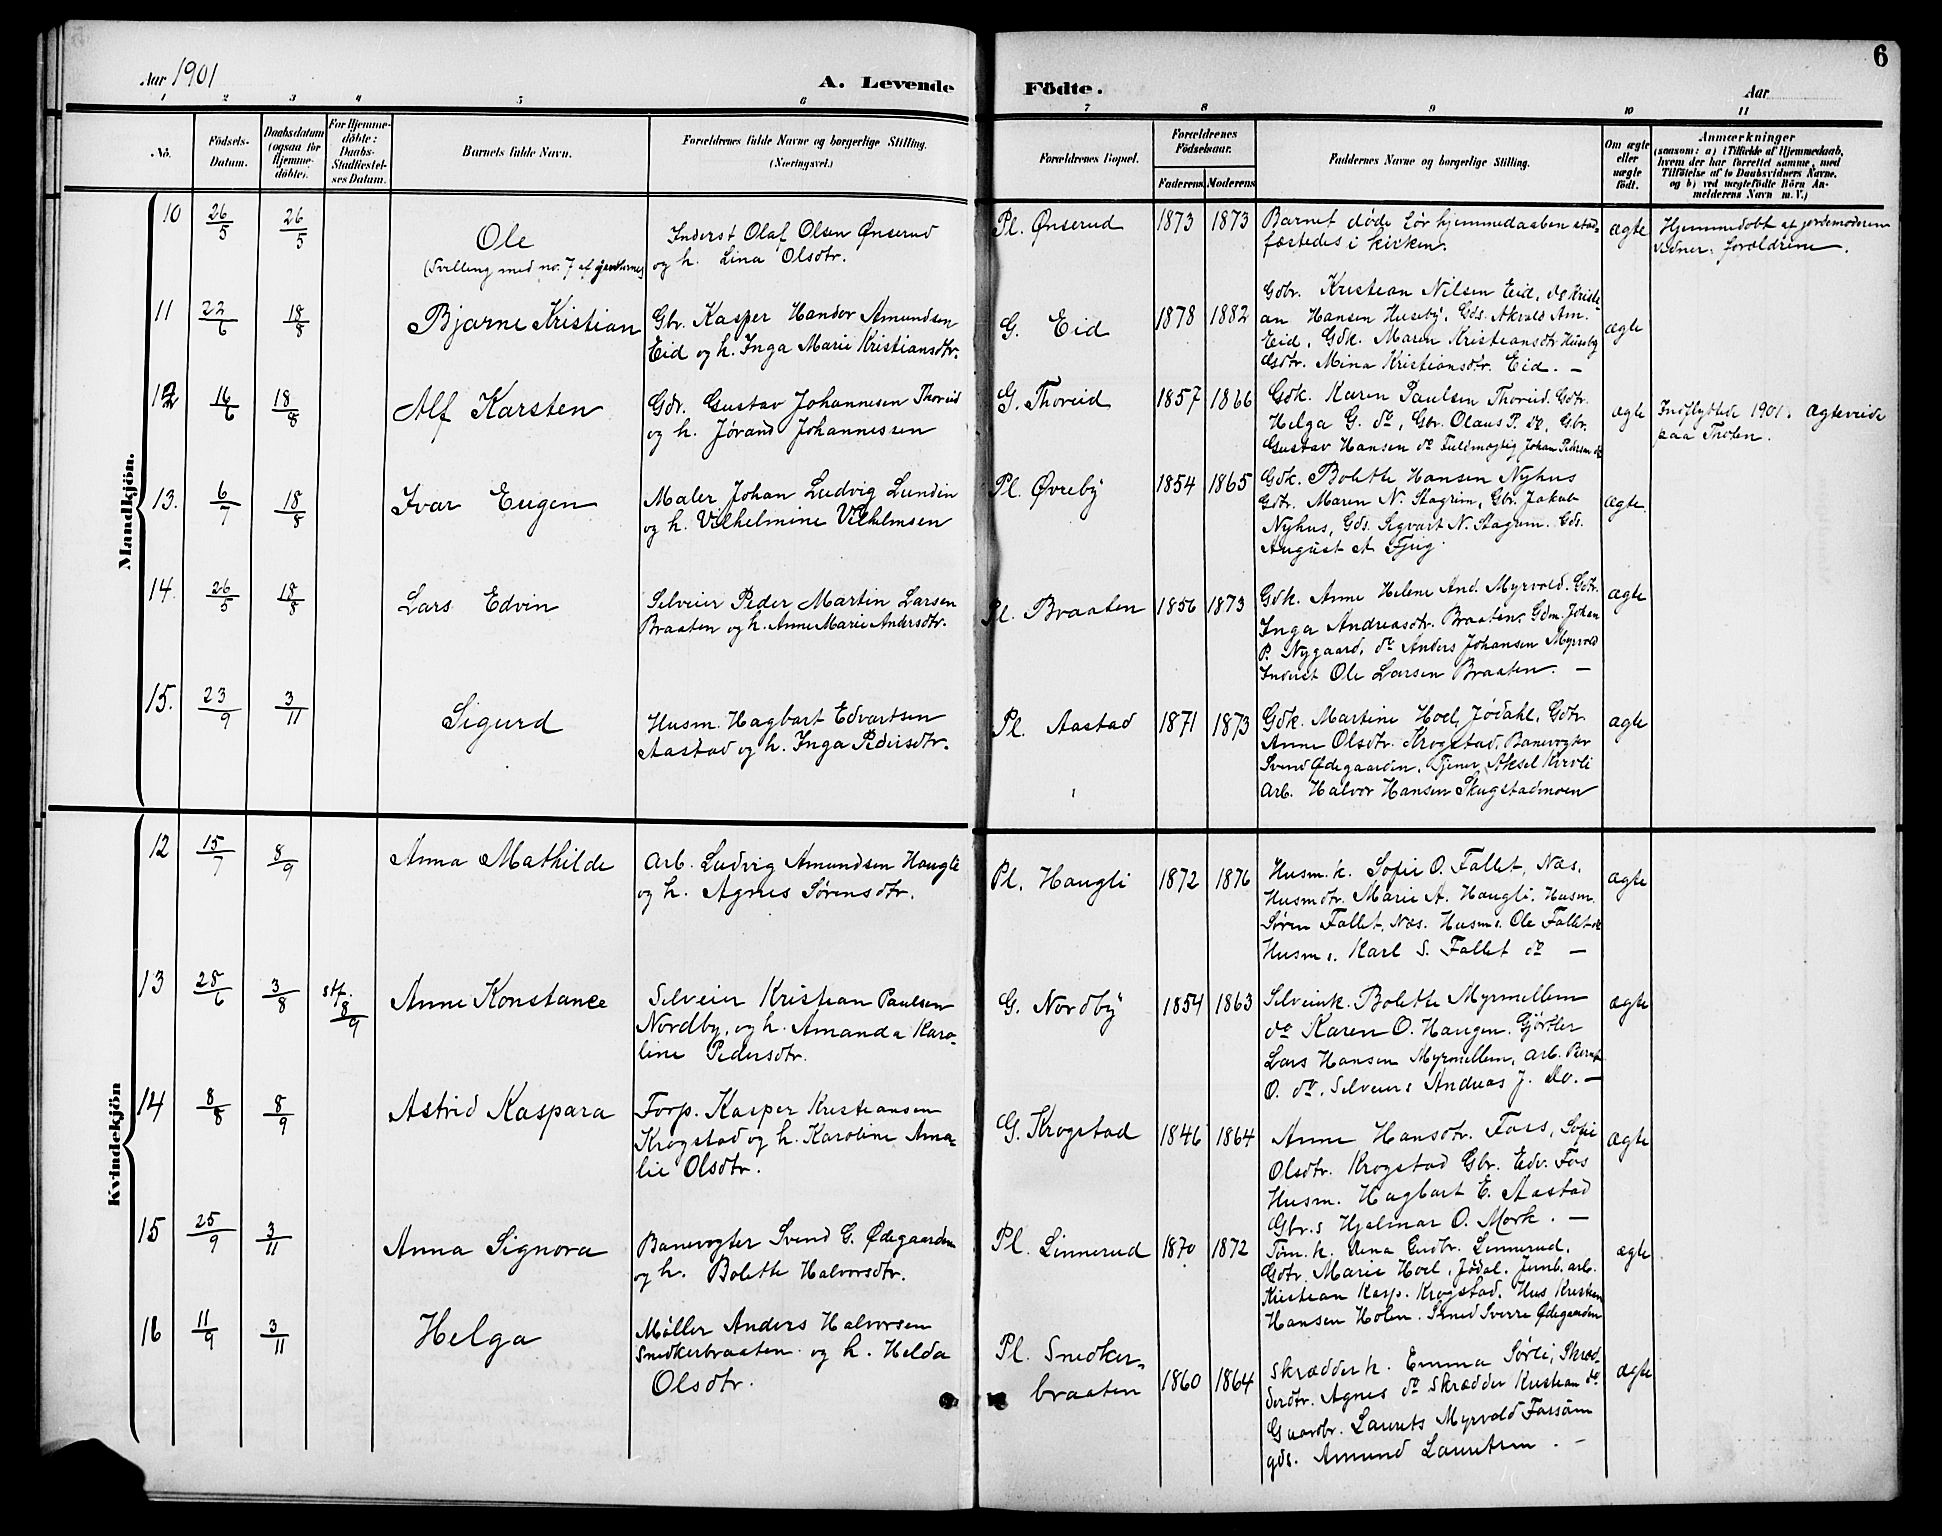 6
Aar 1901
A. Levende
Födte.
Aar
1 2 3 4 5 6 7 8 9 10 11
No.
Födsels-
Datum.
Daabsdatum
(ogsaa for
Hjemme-
döbte).
For Hjemme-
döbte:
Daabs-
Stadfæstel-
ses Datum.
Barnets fulde Navn.
Forældrenes fulde Navne og borgerlige Stilling.
(Næringsvei.)
Forældrenes Bopæl.
Forældrenes
Födselsaar.
Faderens Moderens
Faddernes Navne og borgerlige Stilling.
Om ægte
eller
uægte
födt.
Anmærkninger
(saasom: a) i Tilfælde af Hjemmedaab,
hvem der har forrettet samme, med
Tilföielse af to Daabsvidners Navne,
og b) ved uægtefödte Börn An-
melderens Navn m. V.)
Mandkjön.
10 26/5 26/5
Ole
(Tvilling med no. 7 af
Inderst Olaf Olsen Ønserud
og h. Lina Olsdtr.
Pl. Ønserud 1873 1873
Barnet døde før hjemmedaaben stad-
fæstedes i kirken.
ægte
Hjemmedøbt af jordemoderen
vidner: forældrene.
11 22/6 18/8
Bjarne Kristian
Gbr. Kasper Hander Amundsen
Eid og h. Inga Marie Kristiansdtr.
G. Eid 1878 1882
Gdbr. Kristian Nilsen Eid, og Kristi-
an Hansen Huseby, Gds. Akvald Am.
Eid, Gdk. Maren Kristiansdtr Huseby
Gdtr. Mina Kristiansdtr. Eid. —
ægte
12 16/6 18/8
Alf Karsten
Gdr. Gustav Johannesen Thoreid
og h. Jørand Johannessen
G. Thoreid 1857 1866
Gdk. Karen Paulsen Thoreid. Gdtr.
Helga G. do, Gbr. Olaus P. do, Gbr.
Gustav Hansen do Fuldmægtig Johan Pedersen do
ægte
Indflyttede 1901. Ægteviede
paa Thoten.
13. 6/7 18/8
Ivar Eugen
Maler Johan Ludvig Lundin
og h. Vilhelmine Vilhelmsen
Pl. Øvreby 1854 1865
Gdk. Bolette Hansen Nyhus
Gdtr. Maren N. Stagrim, Gbr. Jakob
Nyhus, Gds. Sigvart N. Stagrim. Gds.
August A. Fjeig
ægte.
14. 26/5 18/8
Lars Edvin
Selveier Peder Martin Larsen
Braaten og h. Anne Marie Andersdtr.
Pl. Braaten 1856 1873
Gdk. Anne Helene And. Myrvold. Gdtr.
Inga Andreasdtr. Braaten, Gdm. Johan
P. Nygaard, do Anders Johansen Myrvold
Inderst Ole Larsen Braaten. —
ægte
15. 23/9 3/11
Sigurd
Husm. Hagbart Edvartsen
Aastad og h. Inga Pedersdtr.
Pl. Aastad 1871 1873
Gdk. Martine Hoel Jødahl, Gdtr
Anne Olsdtr. Krogstad, Banevogter
Svend Ødegaarden, Tjener Aksel Kirvli
Arb. Halvor Hansen Skugstadmoen
ægte
Kvindekjön
12 15/7 8/9
Anna Mathilde
Arb. Ludvig Amundsen Haugli
og h. Agnes Sørensdtr.
Pl. Haugli 1872 1876
Husm.k. Sofie O. Fallet, Næs,
Husmdtr. Marie A. Haugli, Husm.
Søren Fallet, Næs. Husm.s. Ole Fallet do
Husm.s. Karl S. Fallet do —
ægte
13 28/6 3/8 stf. 8/9
Anne Konstance
Selveier Kristian Paulsen
Nordby, og h. Amanda Karo-
line Pedersdtr.
G. Nordby 1854 1863
Selveierk. Bolette Myrmellem
do Karen O. Haugen. Gjörtler
Lars Hansen Myrmellem, Arb. Bernt
O. do, Selveiers Andreas J. Do. —
ægte
14 8/8 8/9
Astrid Kaspara
Forp. Kasper Kristiansen
Krogstad og h. Karoline Ama-
lie Olsdtr.
G. Krogstad 1846 1864
Anne Hansdtr. Fors, Sofie
Olsdtr. Krogstad Gbr. Edv. Fos
Husm. Hagbart E. Aastad
Gbr.s Hjalmar O. Mork. —
ægte
15 25/9 3/11
Anna Signora
Banevogter Svend G. Ødegaarden
og h. Bolette Halvorsdtr.
Pl. Linnerud 1870 1872
Tøm.k. Lina Gudbr. Linnerud,
Gdtr. Marie Hoel, Jødal. Jernb.arb.
Kristian Kasp. Krogstad, Hus Kristian
Hansen Holen. Smed Sverre Ødegaarden
ægte
16 11/9 3/11
Helga
Møller Anders Halvorsen
Snedkerbraaten og h. Helda
Olsdtr.
Pl. Snedker-
braaten 1860 1864
Skrædderk. Emma Sørli, Skræd-
derdtr. Agnes do Skrædder Kristian do
Gaardbr. Laurits Myrvold Forsöm
gds. Amund Lauritsen. —
ægte